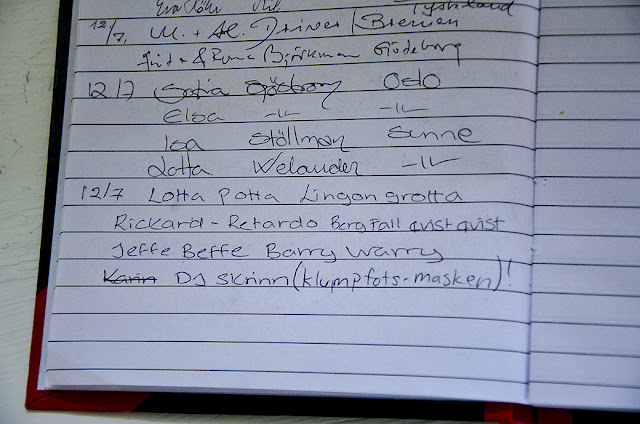 Eva
Tyskland
12/7. M. + Al. Driver / Bremen
& Rune Björkman Göteborg
12/7 Sofia Sjöberg Oslo
Elsa -"- -"-
Isa Stöllman Sunne
Lotta Welander -"-
12/7 Lotta Potta Lingongrotta
Rickard - Retardo Bergfall qvist qvist
Jeffe Beffe Barry Warry
Karin DJ Skrinn (klumpfots-masken)!